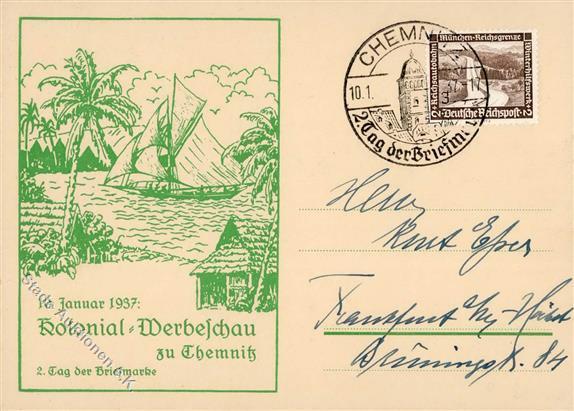 CHEMN
10.1.
2. Tag der Briefm
München-Reichsgrenze
Reichsautobahn
Winterhilfswerk
2 Deutsche Reichspost 2
Herrn
Kurt Esser
Frankfurt a/M Höchst
Brüningstr. 84
Januar 1937:
Kolonial-Werbeschau
zu Chemnitz
2. Tag der Briefmarke